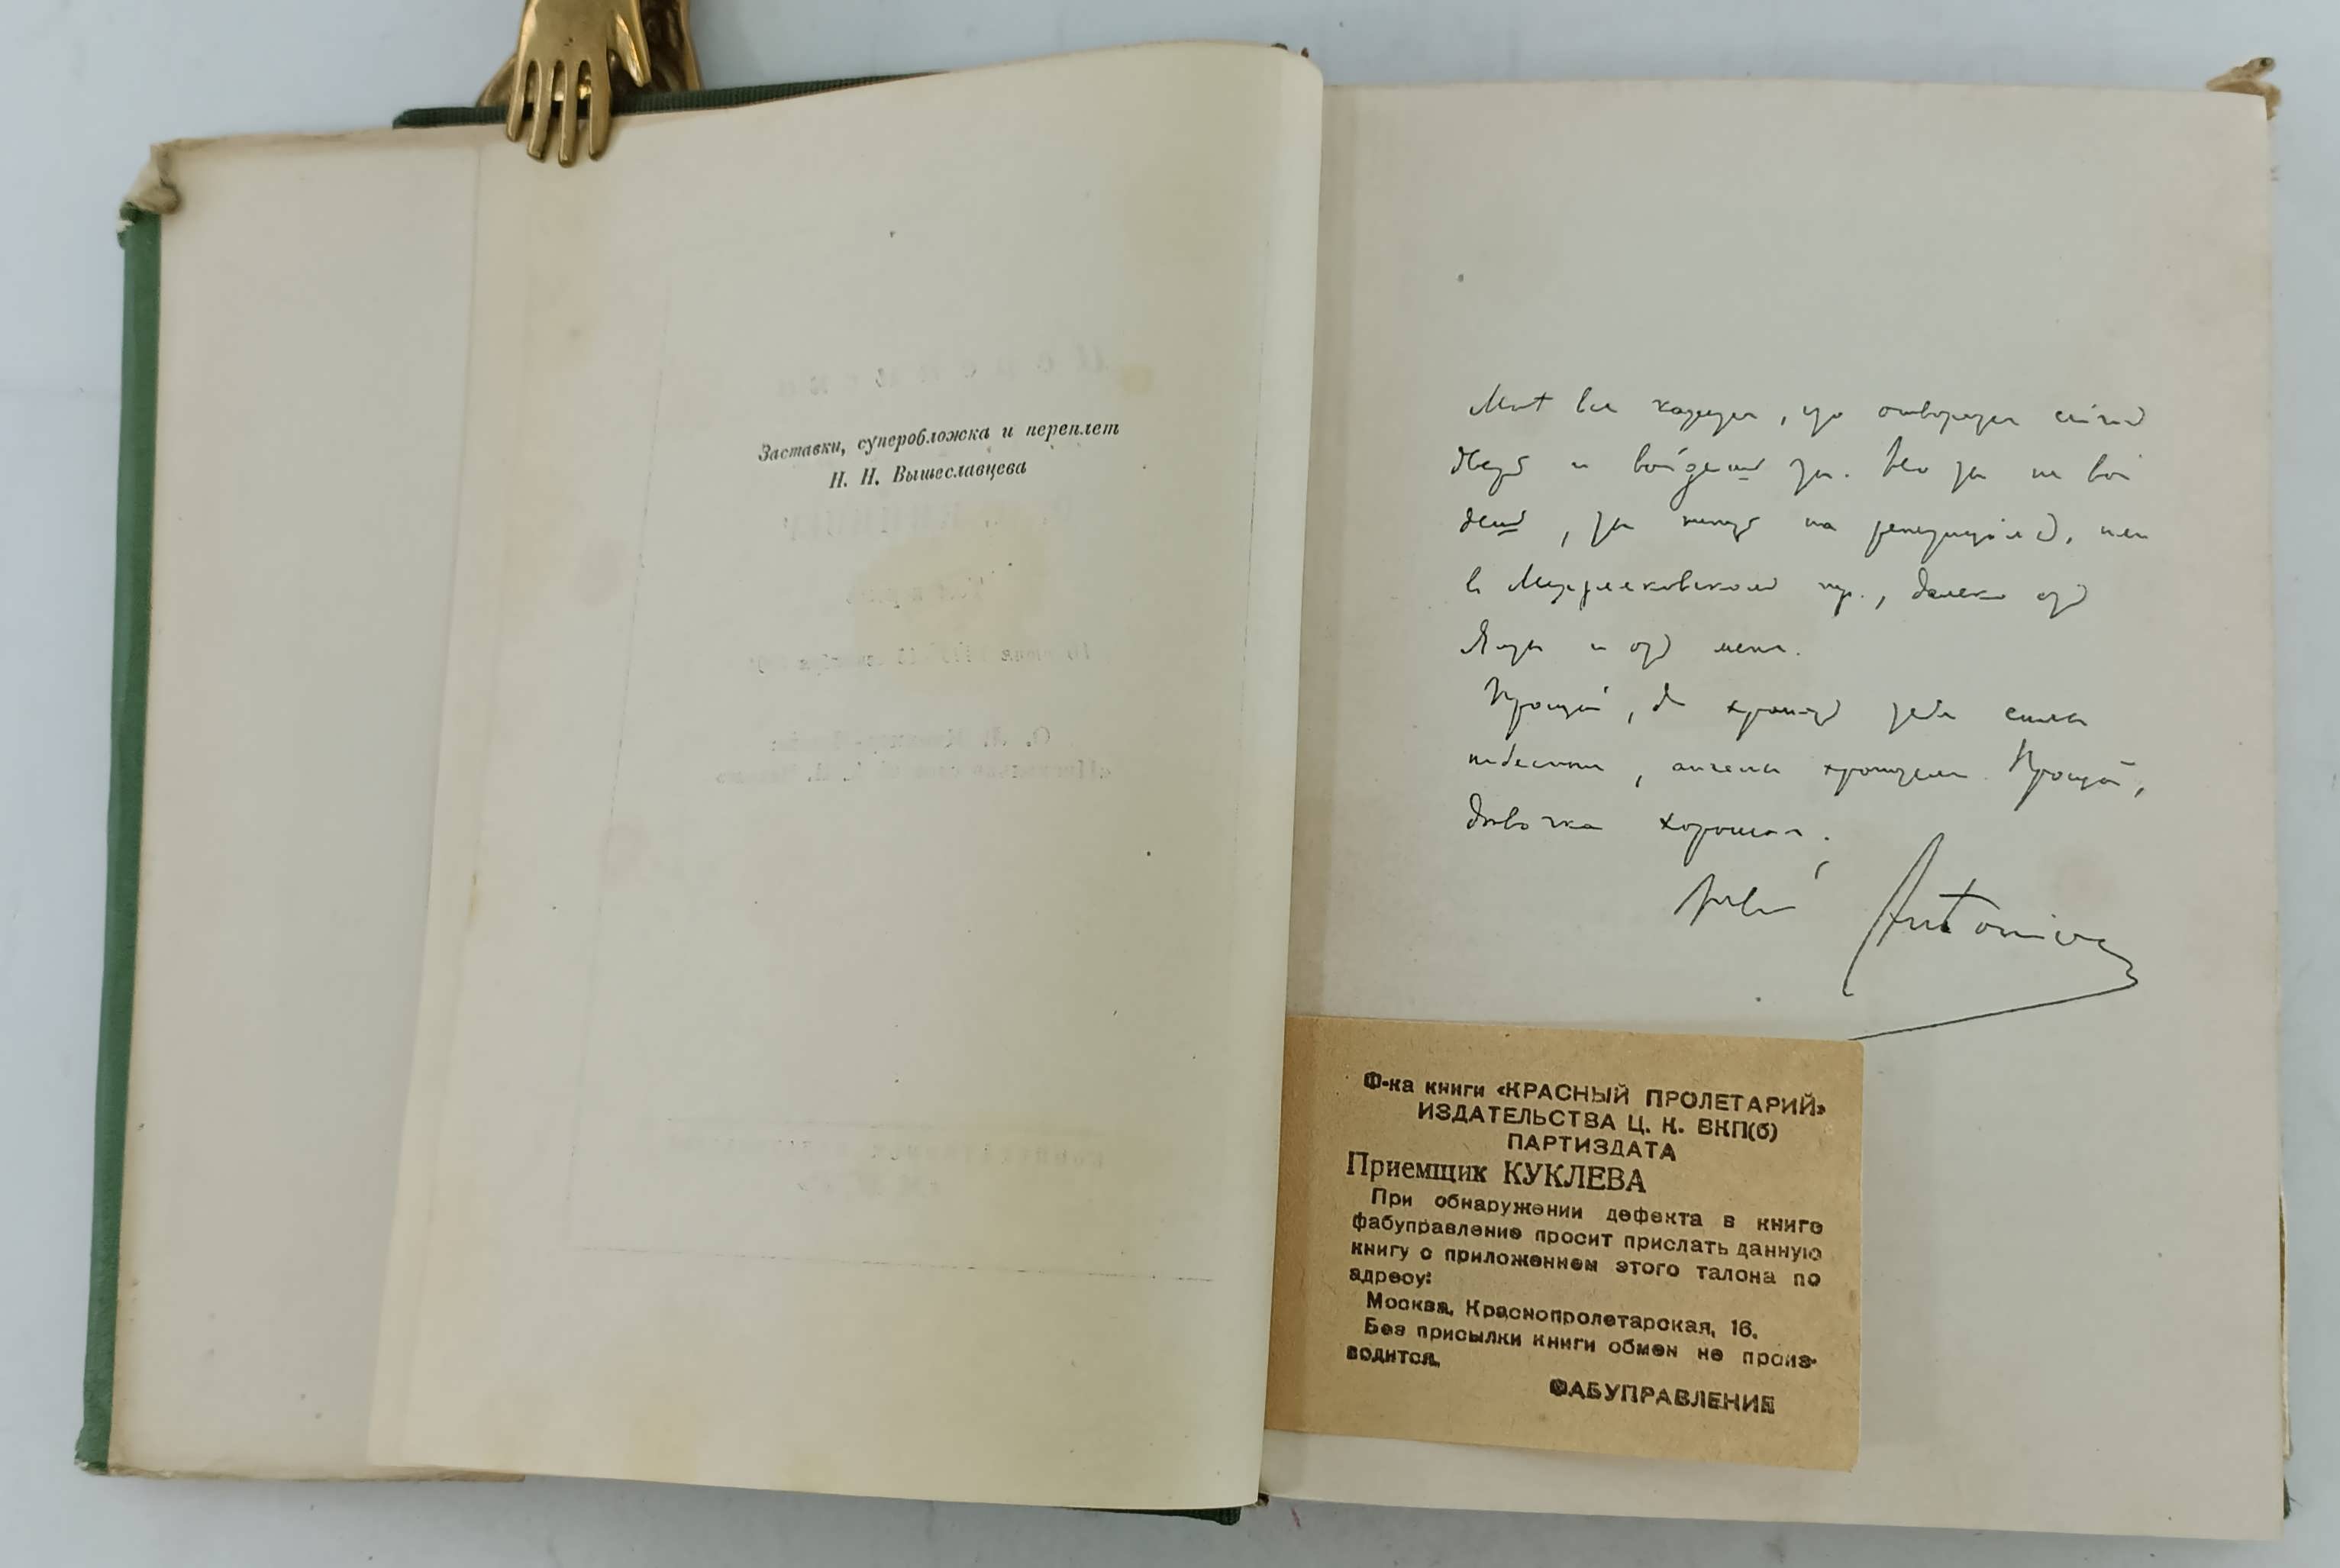 Заставки, суперобложка и переплет
Н. Н. Вышеславцева
Мнѣ все кажется, что отворится сейчасъ
дверь и войдешь ты. Но ты не вой
дешь, ты теперь на репетицiяхъ, или
в Мерзляковскомъ пер., далеко отъ
Ялты и отъ меня.
Прощай, да хранятъ тебя силы
небесныя, ангелы хранители. Прощай,
дѣвочка хорошая.
Твой Antonio
Ф-ка книги «КРАСНЫЙ ПРОЛЕТАРИЙ»
ИЗДАТЕЛЬСТВА Ц. К. ВКП(б)
ПАРТИЗДАТА
Приемщик КУКЛЕВА
При обнаружении дефекта в книге
фабуправление просит прислать данную
книгу с приложением этого талона по
адресу:
Москва, Краснопролетарская, 16.
Без присылки книги обмен не произ-
водится.
ФАБУПРАВЛЕНИЕ